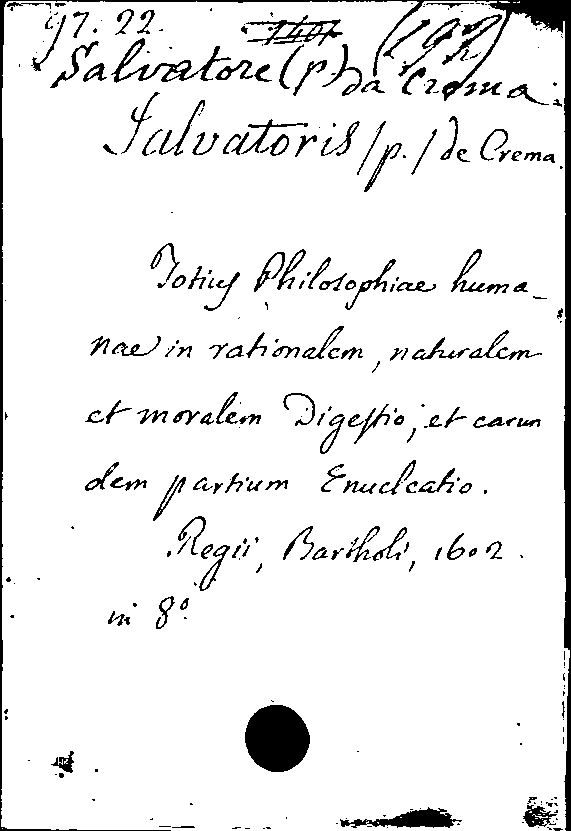 97. 22. 1401 (192)
Salvatore (p.) da Crema.
Salvatoris /p./ de Crema.
Totius Philosophiae huma-
nae in rationalem, naturalem
et moralem Digestio, et earun
dem partium Enucleatio.
Regii, Bartholi, 1602.
in 8º.